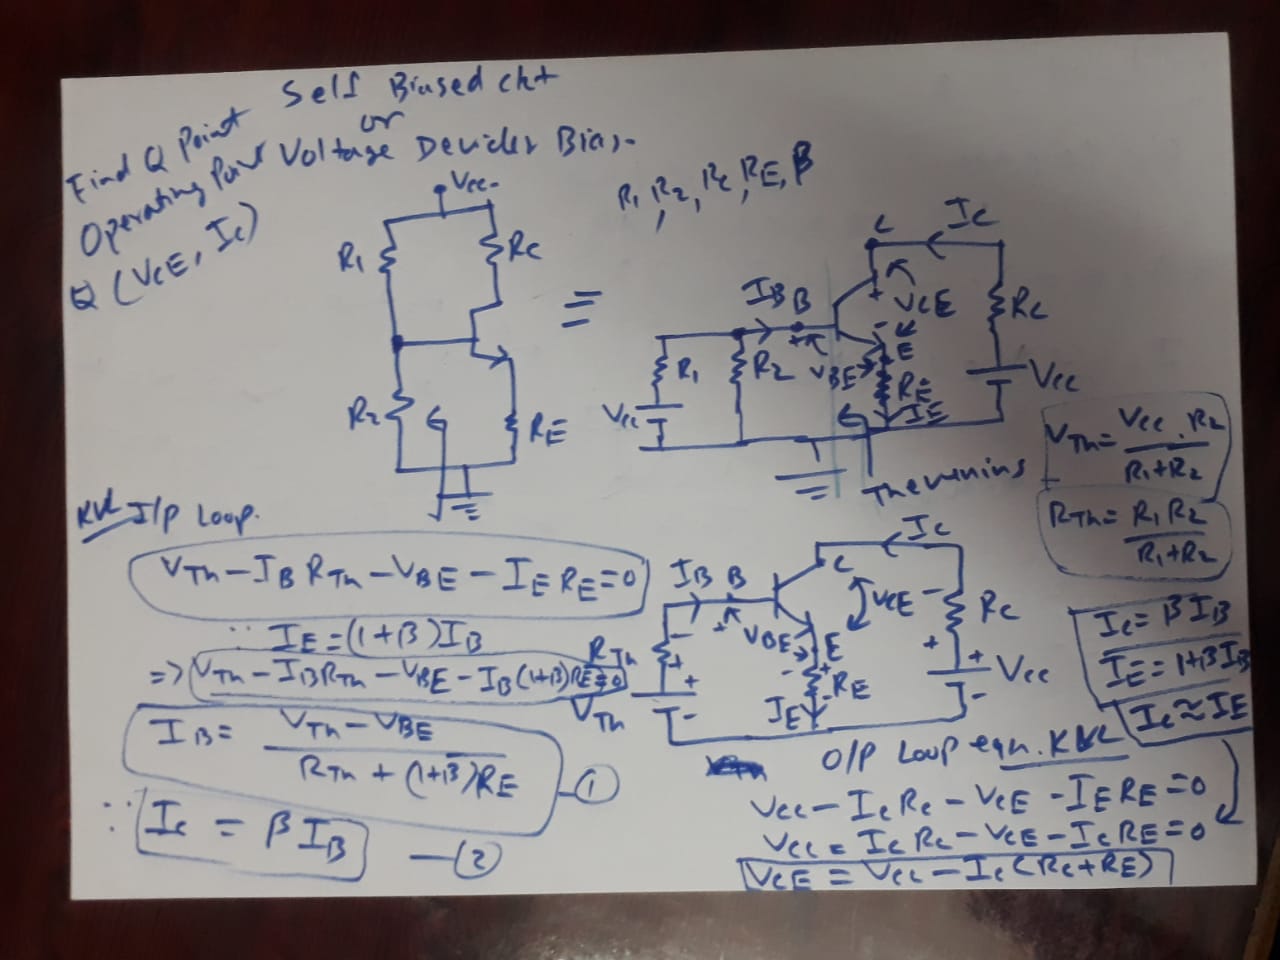 Self Biased ckt
or
Voltage Devider Bias-
Find Q Point
Operating Point
Q (VCE, Ic)
Vcc-
R1
Rc
R2
RE
R1, R2, Rc, RE, β
=
Ic
C
IB B
+
VCE
-
E
Rc
R1
R2
VBE
RE
IE
Vcc
Vcc
Thevenins
VTh = Vcc . R2 / R1+R2
RTh = R1 R2 / R1+R2
KVL I/P Loop.
VTh - IB RTh - VBE - IE RE = 0
∵ IE = (1+β) IB
=> VTh - IB RTh - VBE - IB (1+β) RE = 0
IB = VTh - VBE / RTh + (1+β) RE - ①
∵ Ic = β IB - ②
Ic
C
IB B
VCE
Rc
VBE
E
RTh
RE
Vcc
VTh
IE
Ic = β IB
IE = 1+β IB
Ic ≈ IE
O/P Loop eqn. KVL
Vcc - Ic Rc - VCE - IE RE = 0
Vcc = Ic Rc - VCE - Ic RE = 0
VCE = Vcc - Ic (Rc + RE)